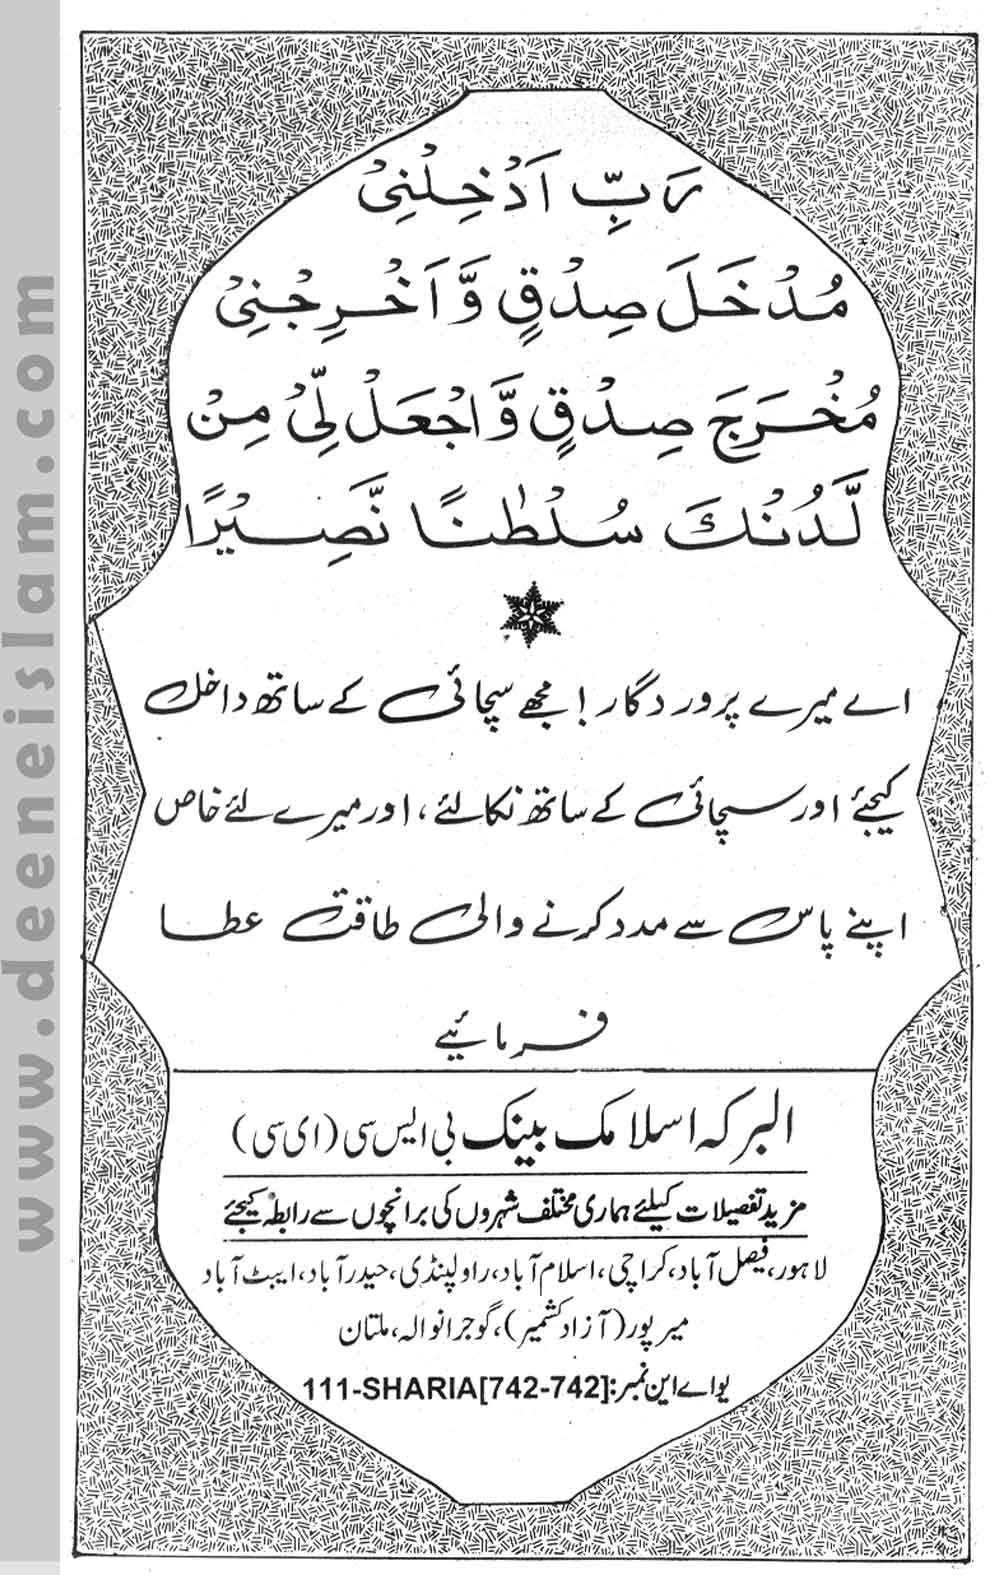 رَبِّ اَدْخِلْنِیْ
مُدْخَلَ صِدْقٍ وَّاَخْرِجْنِیْ
مُخْرَجَ صِدْقٍ وَّاجْعَلْ لِّیْ مِنْ
لَّدُنْكَ سُلْطٰنًا نَّصِیْرًا
اے میرے پروردگار! مجھے سچائی کے ساتھ داخل
کیجئے اور سچائی کے ساتھ نکالئے، اور میرے لئے خاص
اپنے پاس سے مدد کرنے والی طاقت عطا
فرمائیے
البرکہ اسلامک بینک بی ایس سی (ای سی)
مزید تفصیلات کیلئے ہماری مختلف شہروں کی برانچوں سے رابطہ کیجئے
لاہور، فیصل آباد، کراچی، اسلام آباد، راولپنڈی، حیدرآباد، ایبٹ آباد
میرپور (آزاد کشمیر)، گوجرانوالہ، ملتان
یو اے این نمبر: 111-SHARIA[742-742]
www.deeneislam.com